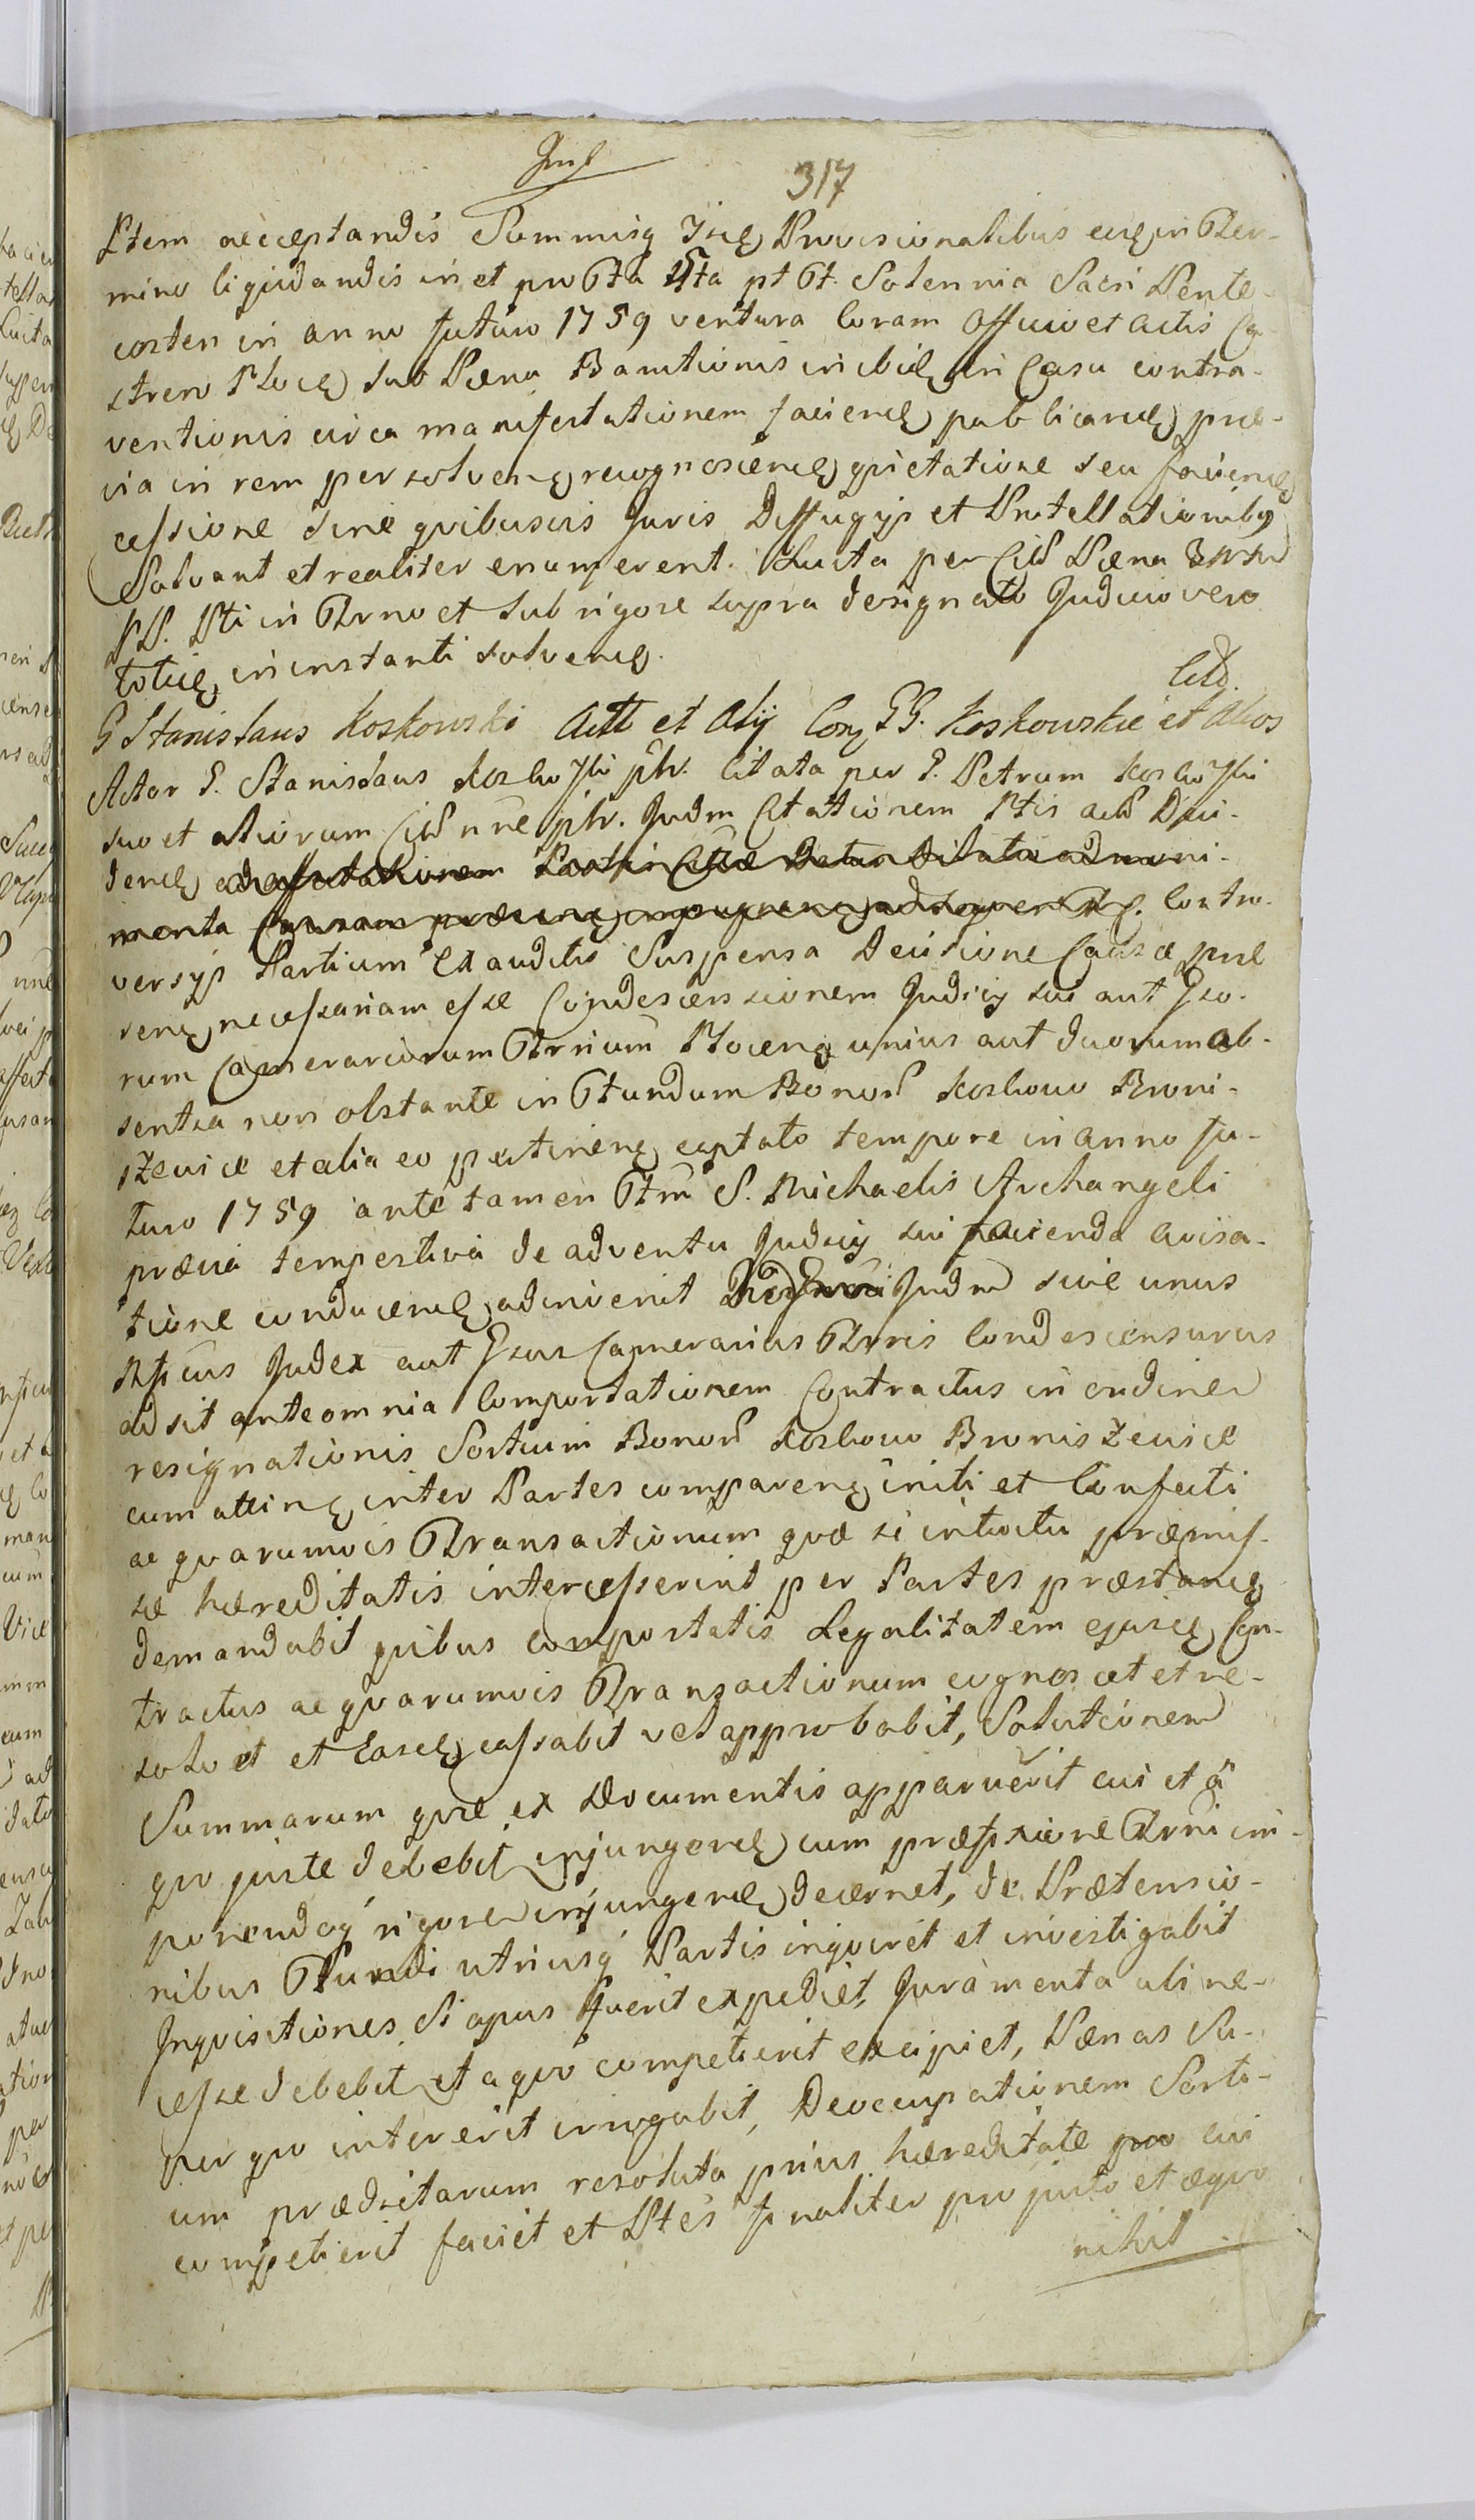 317
Ptem acceptandis Summisq Provisionalibus in Ter-
mino liquidandis in et pro Fta Fta pt Ft. Solennia Sacri Pente-
costen in anno futuro 1759 ventura Coram Officio et Actis Ca-
stren Ploc sub Pæna Bannitionis in Casu contra-
ventionis circa manifestationem facien publican præ-
via in rem persolven recognoscen quietatione seu facien
cessione sine quibusvis Juris Diffugijs et Protellationibq
Solvant et realiter enumerent. Lucta per Citt Pæna
PP. Pti in Trno et sub rigore supra designato Judicio vero
in instanti solven
Citt.
G Stanislaus Koskowski Act et Alij Con GG. Koskowskie et Alios
Actor G. Stanislaus Koskoski phr. Citata per G. Petrum Koskoski
suo et aliorum Citt nne phr. Judm Citationem Ptis ad Deci-
den ad affectationem Partis Citta Datur dilatio ad muni-
menta Causam Contro-
versijs Partium Exauditis Suspensa Decisione Causæ præ
sen necessariam esse Condescensionem Judicij sui aut
rum Camerariorum Trrium Plocen unius aut duorum ab-
sentia non obstante in Fundum Bonor Koskowo Broni-
szewice et alia eo pertinen captato tempore in anno fu-
turo 1759 ante tamen Ftm S. Michaelis Archangeli
præviâ tempestivâ de adventu Judicij sui faciendâ avisa-
tione conducen adinvenit Judm sive unus
Judex aut Camerarius Trris Condescensurus
adsit ante omnia Comportationem Contractus in ordine
resignationis Sortium Bonor Koskowo Broniszewice
cum attin inter Partes comparen initi et Confecti
ac quarumvis Transactionum quæ si intuitu præmis-
sæ hæreditatis intercesserint per Partes præstan
demandabit quibus comportatis Legalitatem ejusd Con-
tractus ac quarumvis Transactionum cognoscet et re-
solvet et Easd cassabit vel approbabit, Solutionem
Summarum quæ ex Documentis apparuerit cui et â
quo juste debebit injungen cum præfixione Trni im-
ponendoq rigore injungen decernet, de Prætensio-
nibus Fundi utriusq Partis inquiret et investigabit
Inquisitiones Si opus fuerit expediet, Juramenta ubi ne-
cesse debebit et a quo competierit excipiet, Pænas Su-
per quo intererit irrogabit, Deoccupationem Sorti-
um prædictarum resoluta prius hæreditate pro cui
competierit faciet et Ptes finaliter pro justo et æquo
nihil